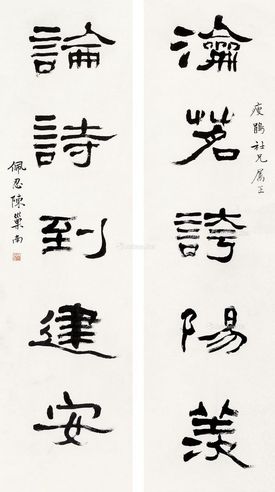 瀹茗誇陽羨
庾鵲社兄屬正
論詩到建安
佩忍陳巢南